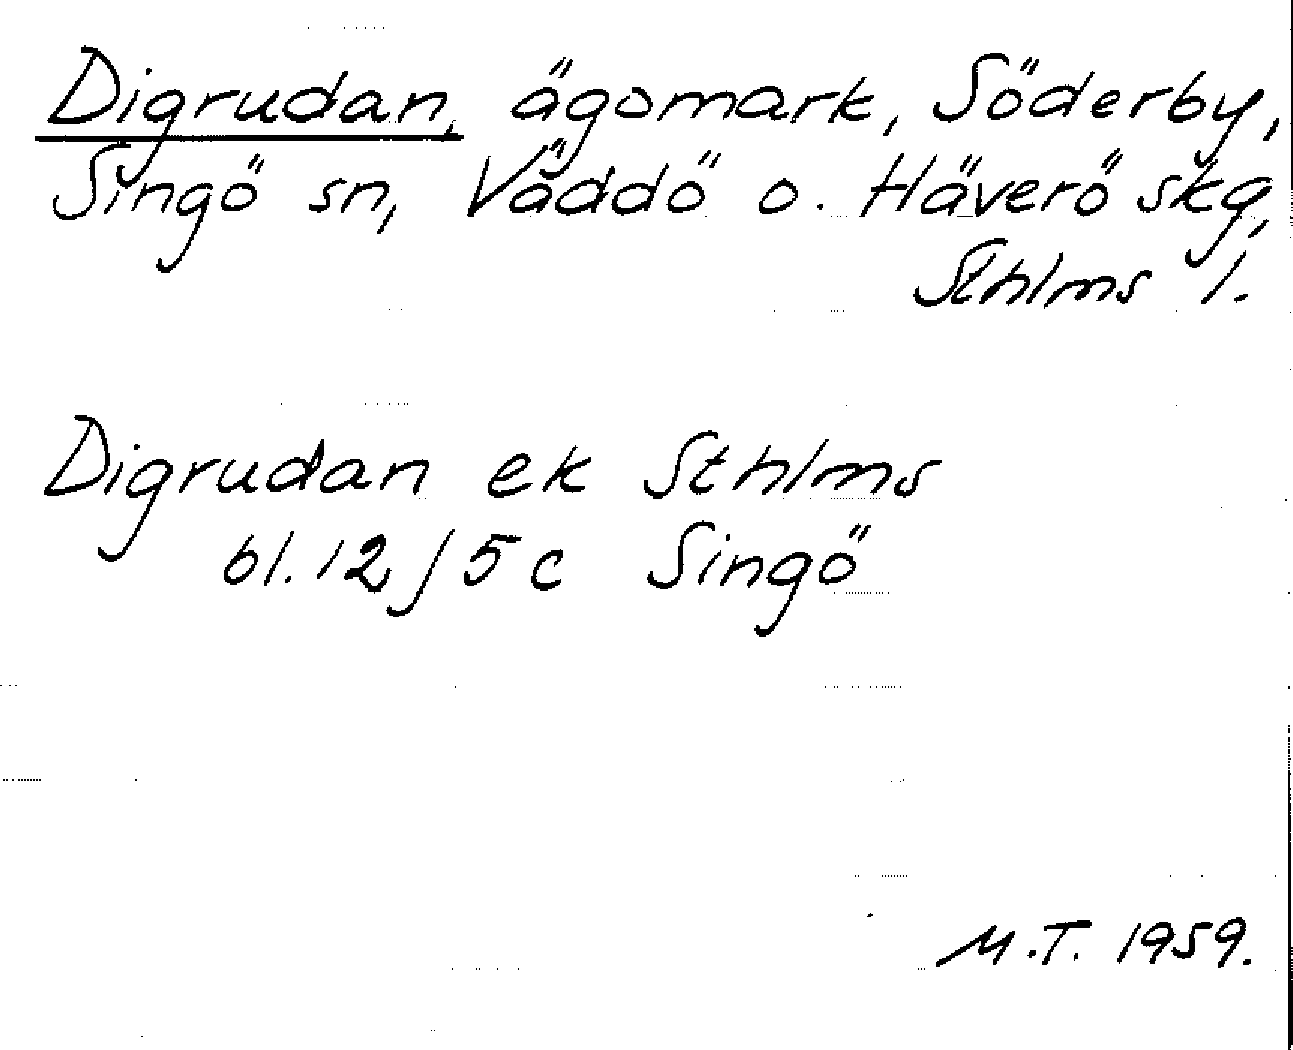 Digrudan, ägomark, Söderby,
Singö sn, Väddö o. Häverö skg,
Sthlms l.
Digrudan ek Sthlms
bl. 12/5c Singö
M.T. 1959.